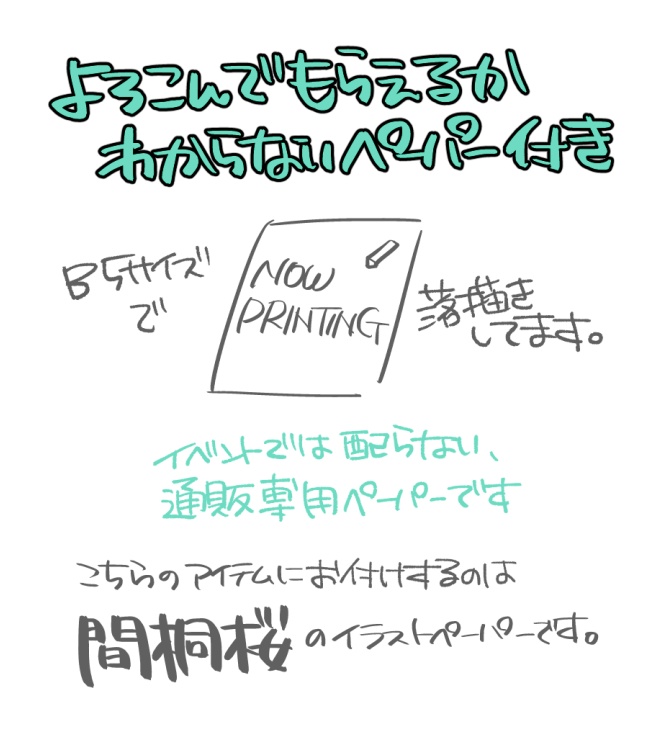 よろこんでもらえるか
わからないペーパー付き
B5サイズ
で
NOW
PRINTING
落描き
してます。
イベントでは配らない、
通販専用ペーパーです
こちらのアイテムにお付けするのは
間桐桜のイラストペーパーです。